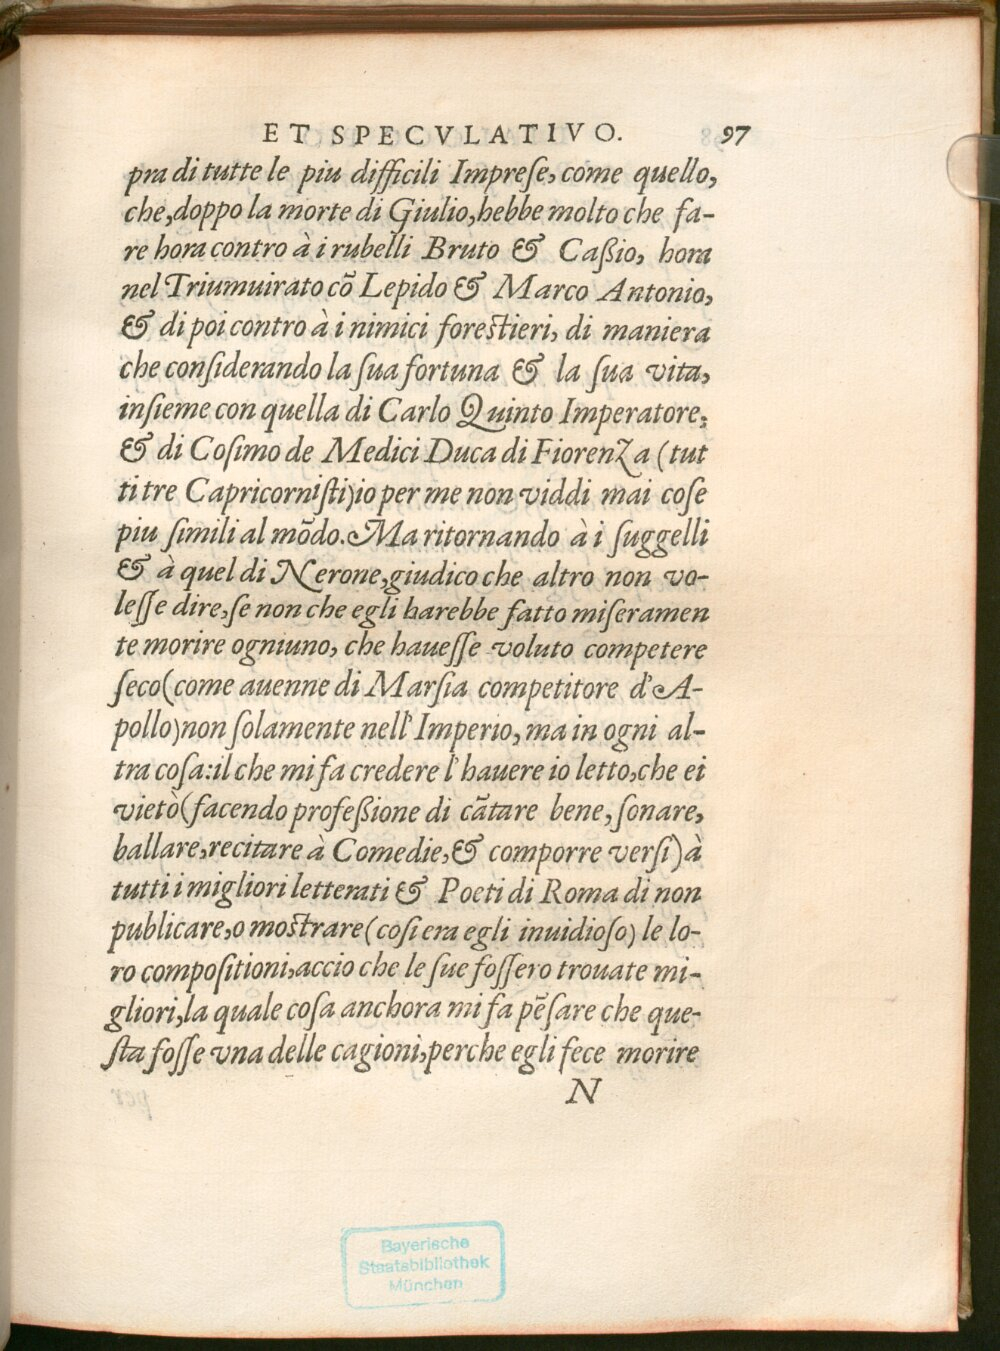 ET SPECVLATIVO. 97
pra di tutte le piu difficili Imprese, come quello,
che, doppo la morte di Giulio, hebbe molto che fa-
re hora contro à i rubelli Bruto & Caßio, hora
nel Triumuirato cõ Lepido & Marco Antonio,
& di poi contro à i nimici forestieri, di maniera
che considerando la sua fortuna & la sua vita,
insieme con quella di Carlo Quinto Imperatore,
& di Cosimo de Medici Duca di Fiorenza (tut
ti tre Capricornisti) io per me non viddi mai cose
piu simili al mõdo. Ma ritornando à i suggelli
& à quel di Nerone, giudico che altro non vo-
lesse dire, se non che egli harebbe fatto miseramen
te morire ogniuno, che hauesse voluto competere
seco (come auenne di Marsia competitore d'A-
pollo) non solamente nell'Imperio, ma in ogni al-
tra cosa: il che mi fa credere l'hauere io letto, che ei
vietò (facendo profeßione di cãtare bene, sonare,
ballare, recitare à Comedie, & comporre versi) à
tutti i migliori letterati & Poeti di Roma di non
publicare, o mostrare (cosi era egli inuidioso) le lo-
ro compositioni, accio che le sue fossero trouate mi-
gliori, la quale cosa anchora mi fa pẽsare che que-
sta fosse vna delle cagioni, perche egli fece morire
N
Bayerische
Staatsbibliothek
München